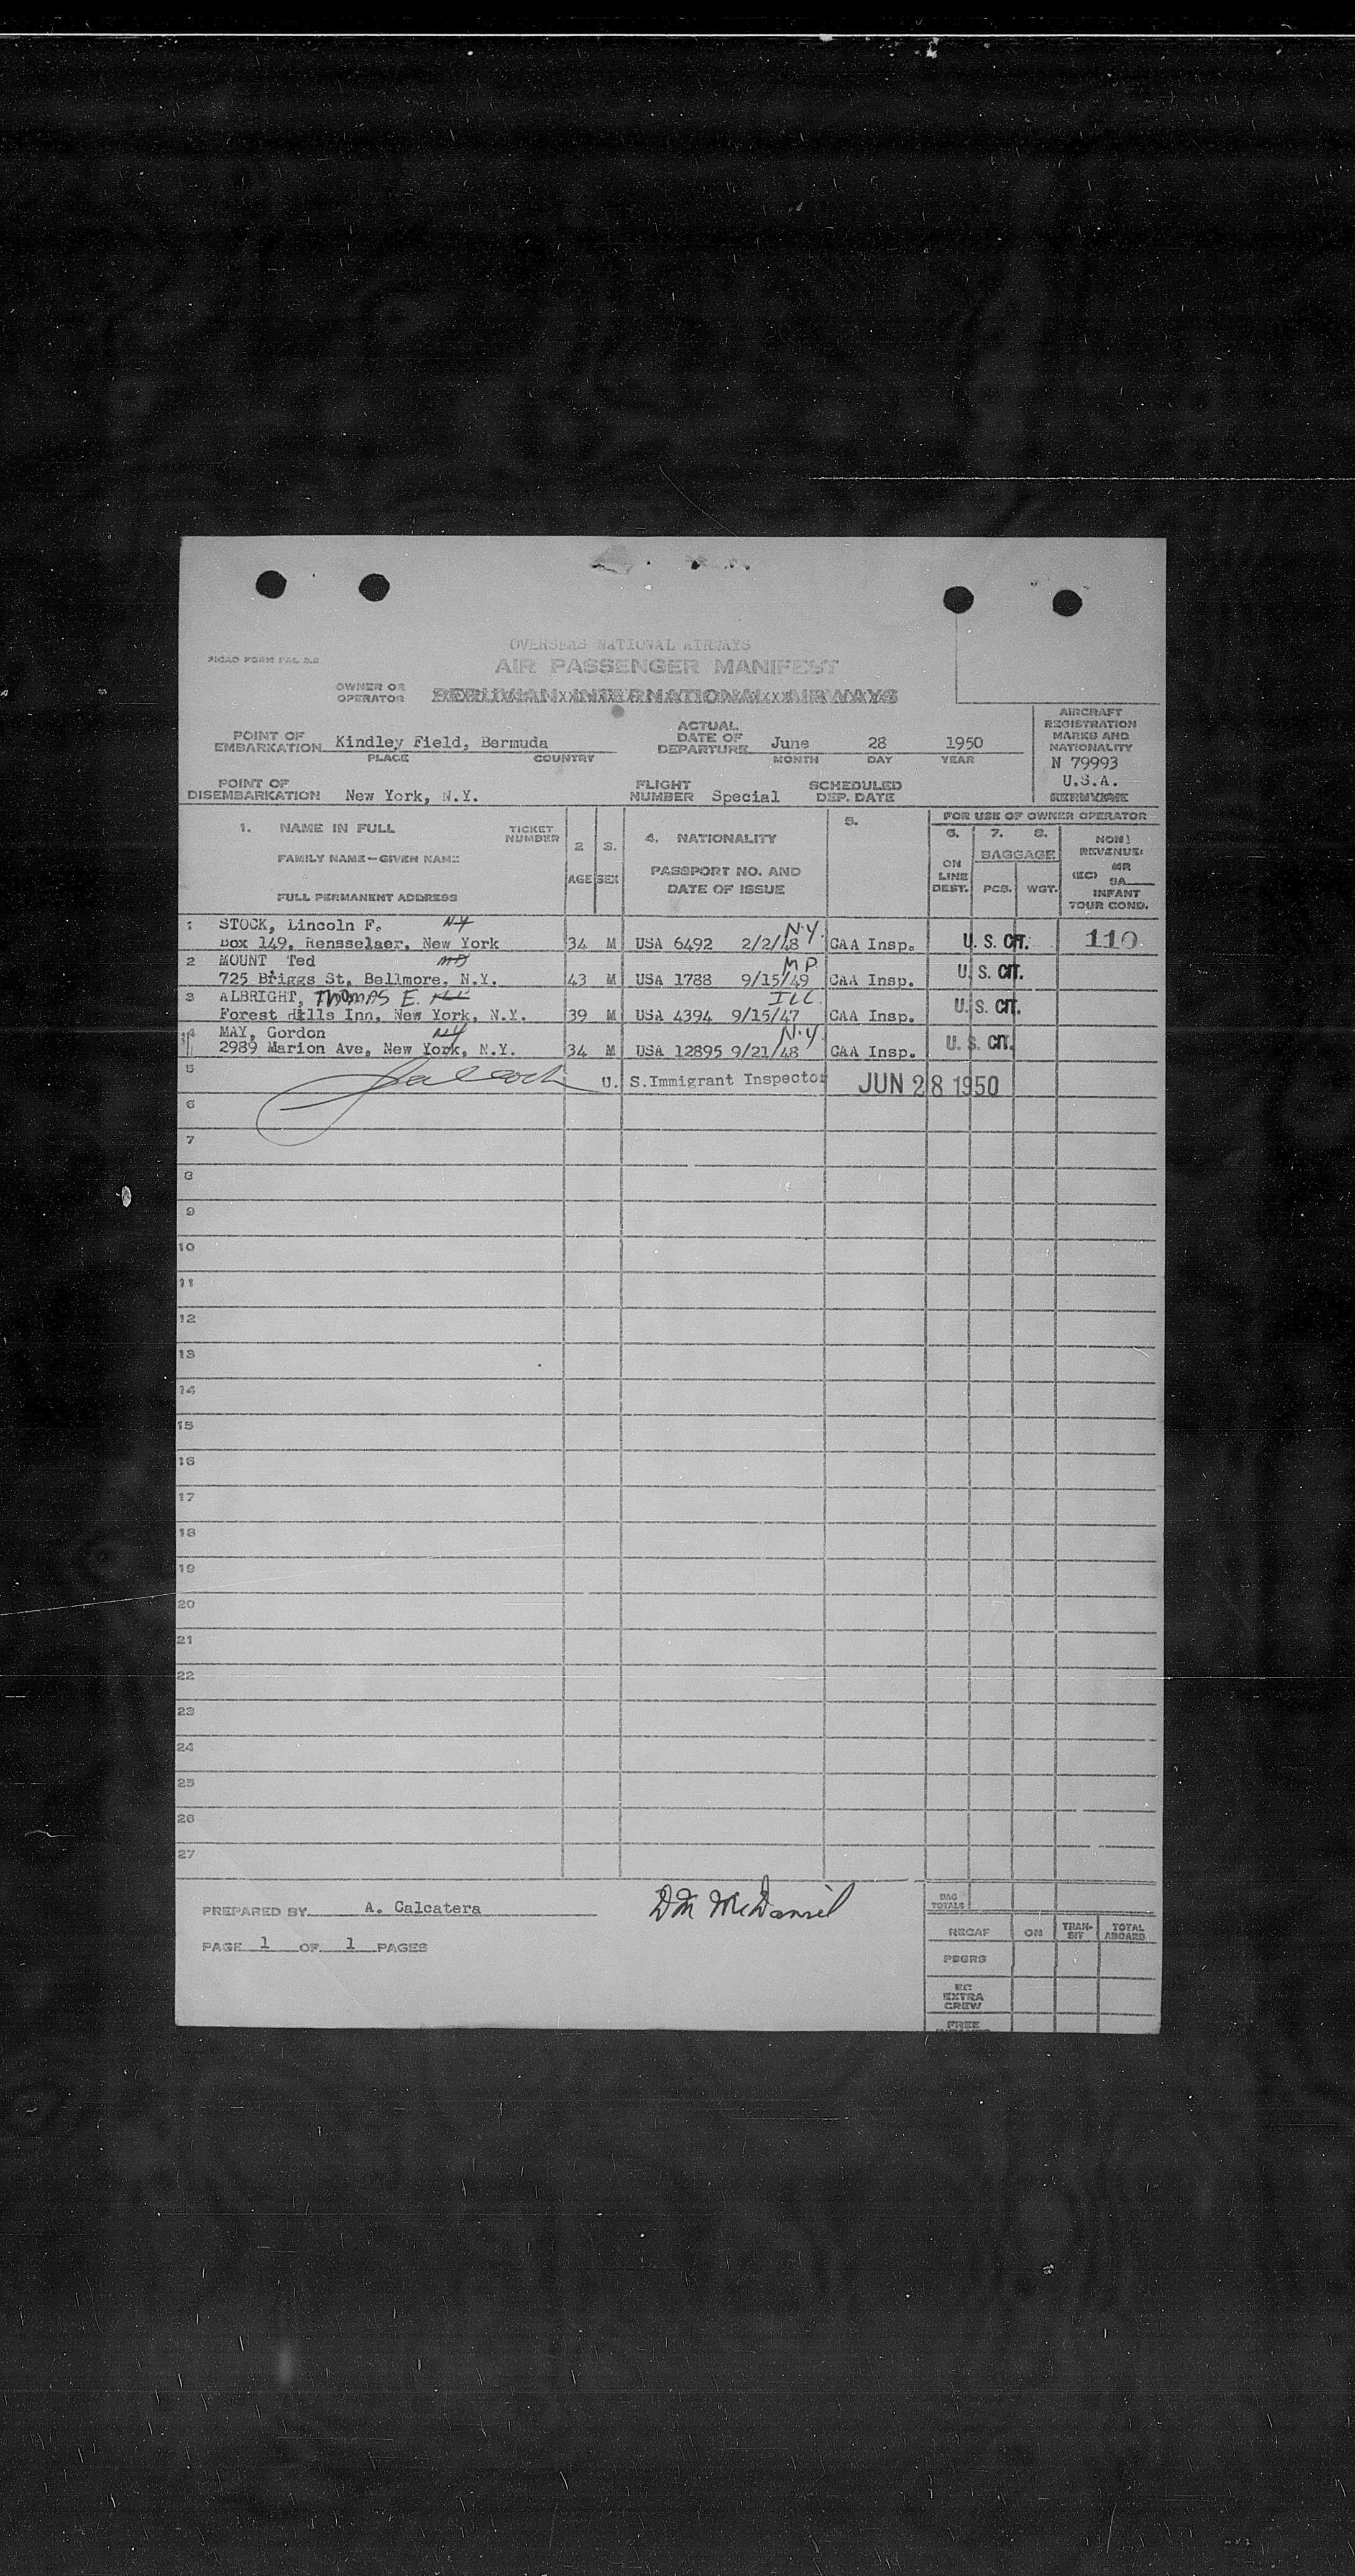 OVERSEAS NATIONAL AIRWAYS
PICAO FORM FAL 2.2
AIR PASSENGER MANIFEST
OWNER OR OPERATOR PERUVIAN INTERNATIONAL AIRWAYS
POINT OF EMBARKATION Kindley Field, Bermuda
PLACE COUNTRY
ACTUAL DATE OF DEPARTURE June 28 1950
MONTH DAY YEAR
AIRCRAFT REGISTRATION MARKS AND NATIONALITY
N 79993
U.S.A.
PERUVIANE
POINT OF DISEMBARKATION New York, N.Y.
FLIGHT NUMBER Special
SCHEDULED DEP. DATE
1. NAME IN FULL TICKET NUMBER
FAMILY NAME—GIVEN NAME
FULL PERMANENT ADDRESS
2 AGE
3. SEX
4. NATIONALITY
PASSPORT NO. AND DATE OF ISSUE
5.
FOR USE OF OWNER OPERATOR
6. ON LINE DEST.
7. 8. BAGGAGE
PCS. WGT.
NON REVENUE:
MR
(EC) SA
INFANT
TOUR COND.
1 STOCK, Lincoln F. NY N.Y.
Box 149, Rensselaer, New York 34 M USA 6492 2/2/48 CAA Insp. U. S. CIT. 110
2 MOUNT Ted MD MD
725 Briggs St, Bellmore, N.Y. 43 M USA 1788 9/15/49 CAA Insp. U. S. CIT.
3 ALBRIGHT, THOMAS E. ILL ILL.
Forest Hills Inn, New York, N.Y. 39 M USA 4394 9/15/47 CAA Insp. U. S. CIT.
4 MAY, Gordon NY N.Y.
2989 Marion Ave, New York, N.Y. 34 M USA 12895 9/21/48 CAA Insp. U. S. CIT.
5 U. S. Immigrant Inspector JUN 28 1950
6
7
8
9
10
11
12
13
14
15
16
17
18
19
20
21
22
23
24
25
26
27
PREPARED BY A. Calcatera
DM McDaniel
PAGE 1 OF 1 PAGES
BAG TOTALS
RECAP ON TRAN-SIT TOTAL ABOARD
PSGRS
EC EXTRA CREW
FREE